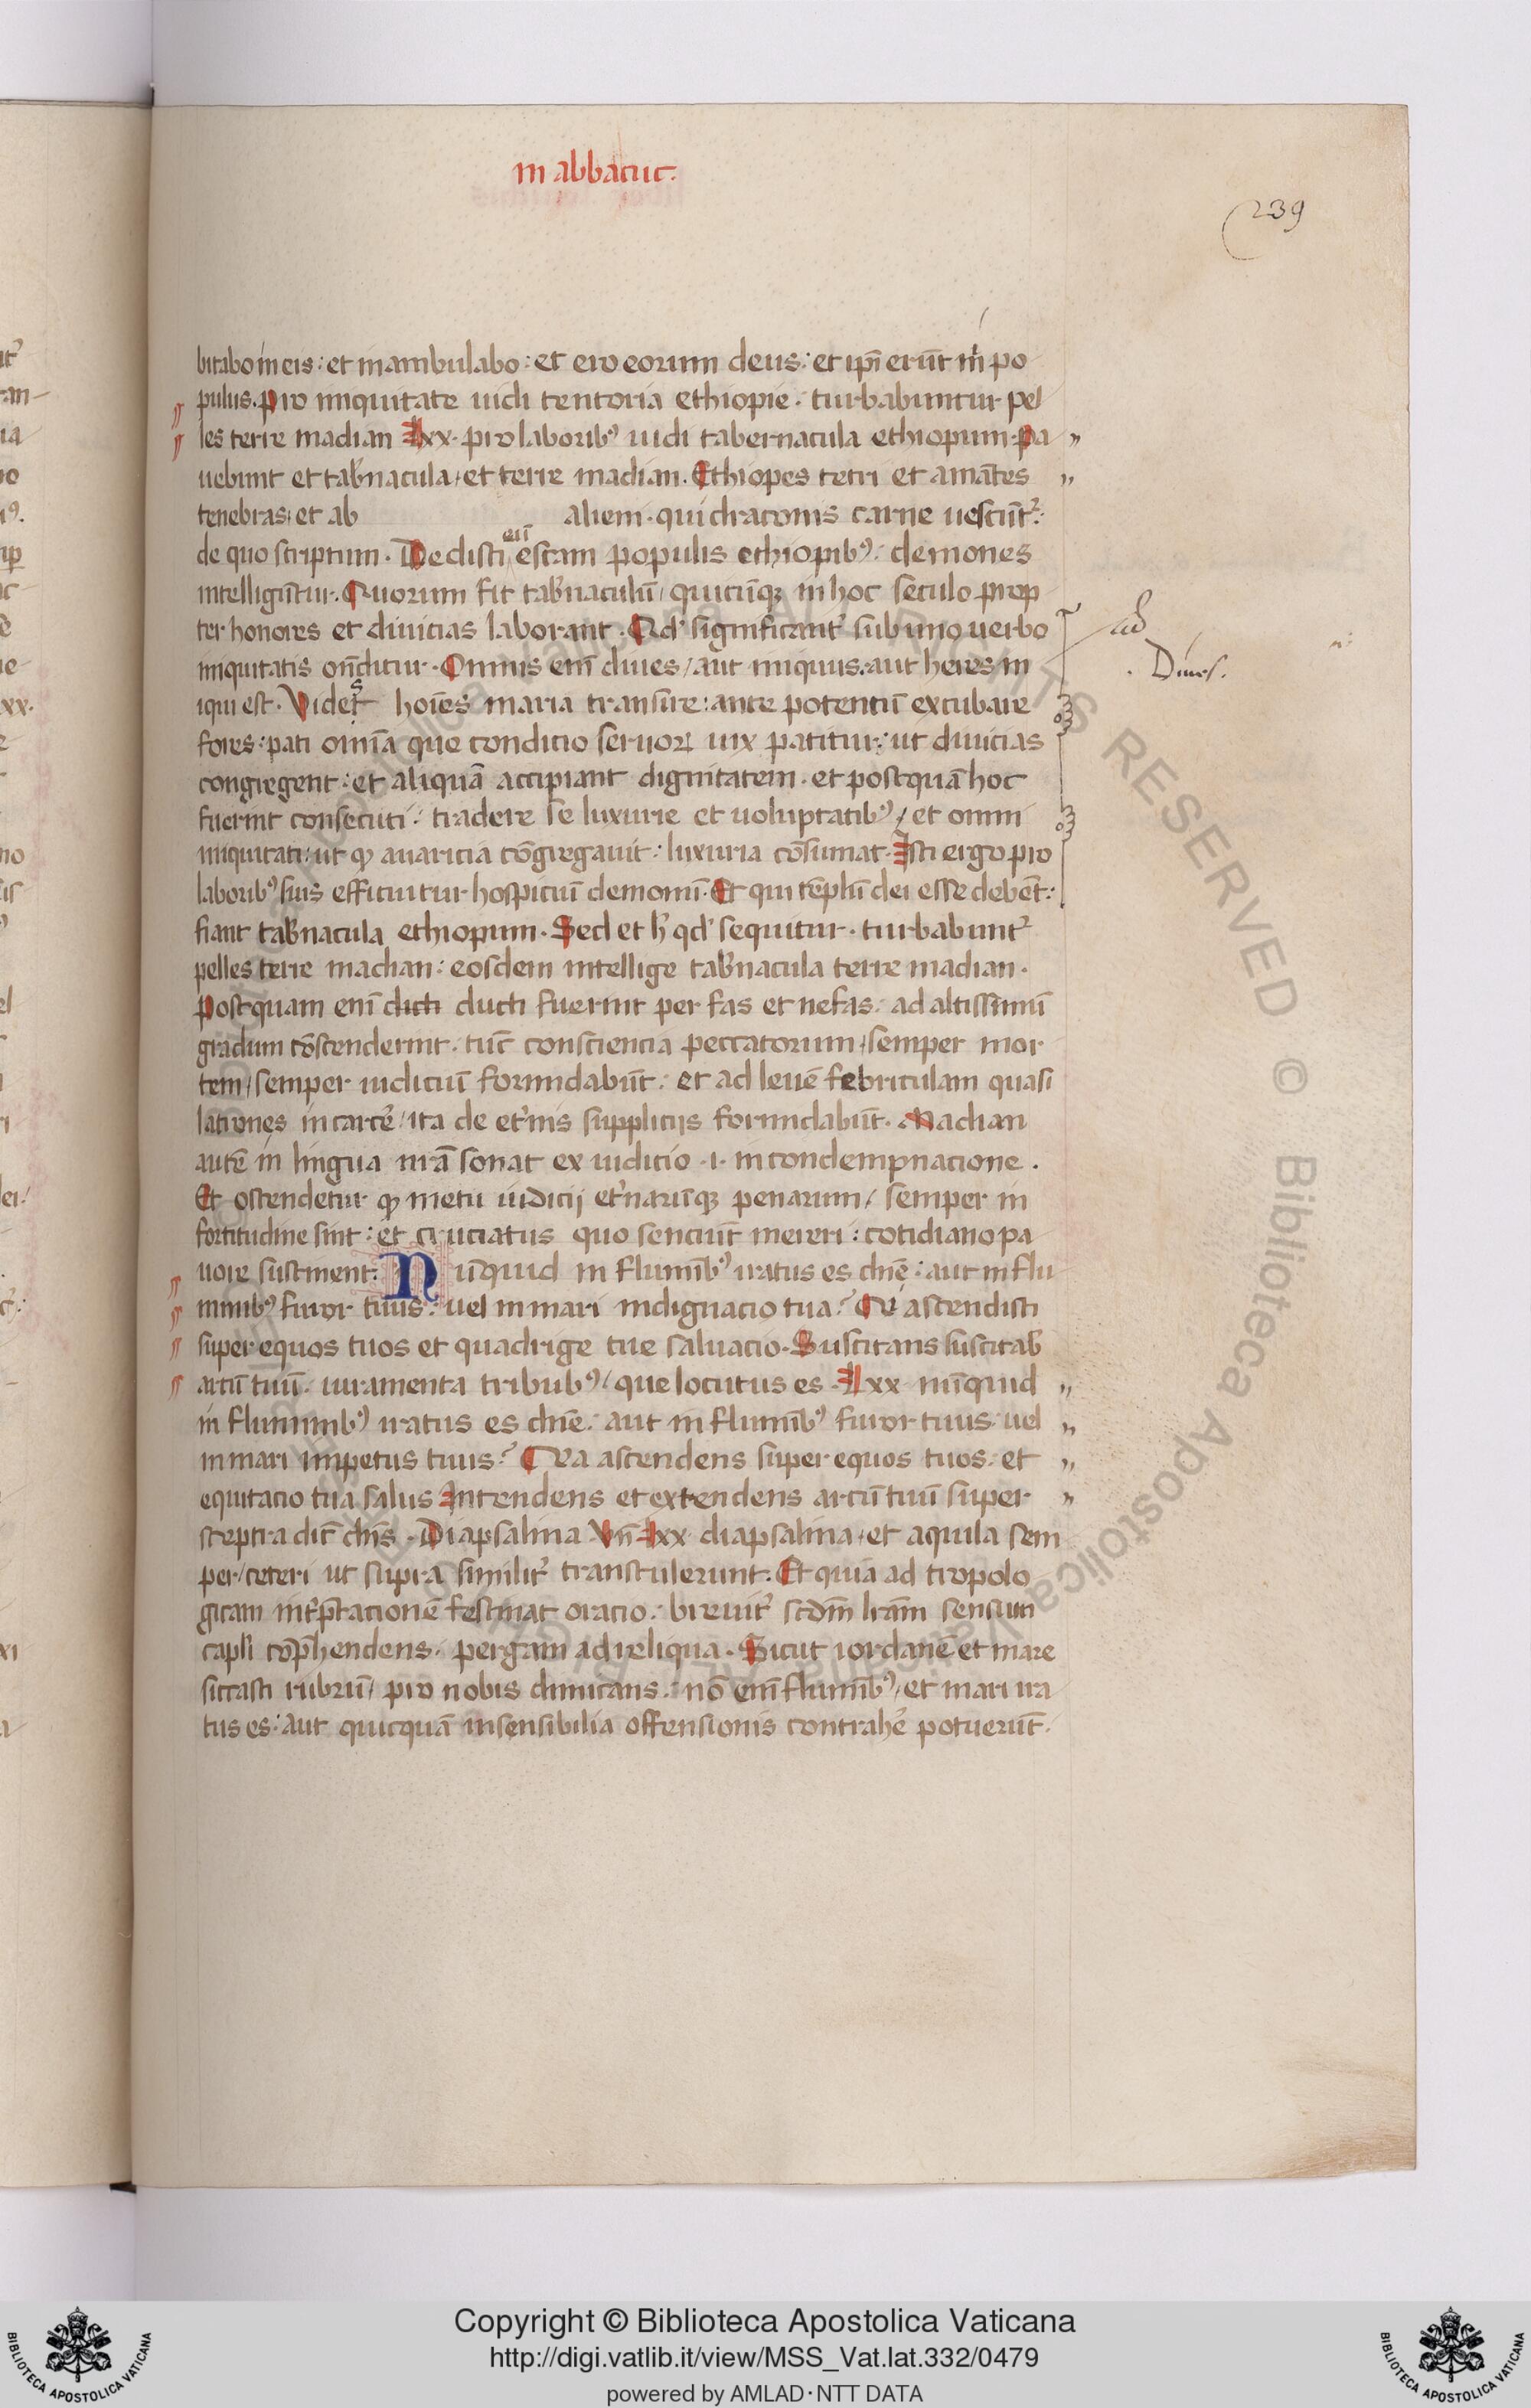 in abbacuc.
239
bitabo in eis : et inambulabo : et ero eorum deus : et ip̄i erūt m̄ po
pulus. Pro iniquitate uidi tentoria ethiopie . turbabuntur pel
les terre madian Lxx . pro laborib⁹ uidi tabernacula ethiopum . Pa
uebunt et tab̄nacula / et terre madian . Ethiopes tetri et amātes
tenebras / et ab aliem . qui draconis carne uescūt᷑ .
eū
de quo scriptum . Dedisti escam populis ethiopib⁹ . demones
intelligūtur . Quorum fit tab̄naculū / quicūqꝫ in hoc seculo prop
ter honores et diuicias laborant . Qd' significant᷑ sub uno uerbo
iniquitatis on̄ditur . Omnis enī diues / aut iniquus . aut heres in
iqui est . Videṣ hoīes maria transire : ante potentū excubare
fores : pati omīa que conditio seruoꝝ uix patitur : ut diuicias
congregent : et aliquā accipiant dignitatem . et postquā hoc
fuerint consecuti : tradere se luxurie et uoluptatib⁹ / et omni
iniquitati : ut ꝙ auaricia cōgregauit : luxuria cōsumat . Isti ergo pro
laborib⁹ suis efficiuntur hospiciū demonū . Et qui tēplū dei esse debēt :
fiant tab̄nacula ethiopum . Sed et h̄ qd' sequitur . turbabunt᷑
pelles terre madian : eosdem intellige tab̄nacula terre madian .
Postquam enī dicti ducti fuerint per fas et nefas . ad altissimū
gradum cōscenderint . tūc consciencia peccatorum / semper mor
tem / semper iudiciū formidabūt : et ad leuē febriculam quasi
latrones in carcē / ita de et᷑nis suppliciis formidabūt . Madian
autē in lingua nrā sonat ex iudicio . i . in condempnacione .
Et ostendetur ꝙ metu iudicij et᷑narūqꝫ penarum / semper in
fortitudine sint : et cruciatus quo senciūt mereri : cotidiano pa
uore sustinent . Nūquid in flumīb⁹ iratus es dn̄e : aut in flu
minib⁹ furor tuus : uel in mari indignacio tua ? Qi ascendisti
super equos tuos et quadrige tue saluacio . Suscitans suscitab̄
arcū tuū . iuramenta tribub⁹ / que locutus es . Lxx nūquid
in fluminib⁹ iratus es dn̄e : aut in flumīb⁹ furor tuus . uel
in mari impetus tuus ? Qia ascendens super equos tuos . et
equitacio tua salus Intendens et extendens arcū tuū super
sceptra dic̄ dn̄s . Diapsalma Vn̄ Lxx diapsalma / et aquila sem
per / ceteri ut supra similit᷑ transtulerunt . Et quia ad tropolo
gicam int᷑p̄tacionē festinat oracio . breuit᷑ scd̄m lrām sensum
capl̄i cōp̄hendens . pergam ad reliqua . Sicut iordanē et mare
siccasti rubrū / pro nobis dimicans . nō enī flumīb⁹ / et mari ira
tus es : aut quicquā insensibilia offensionis contrahē potuerūt .
ad
. Diues .
Copyright © Biblioteca Apostolica Vaticana
http://digi.vatlib.it/view/MSS_Vat.lat.332/0479
powered by AMLAD·NTT DATA